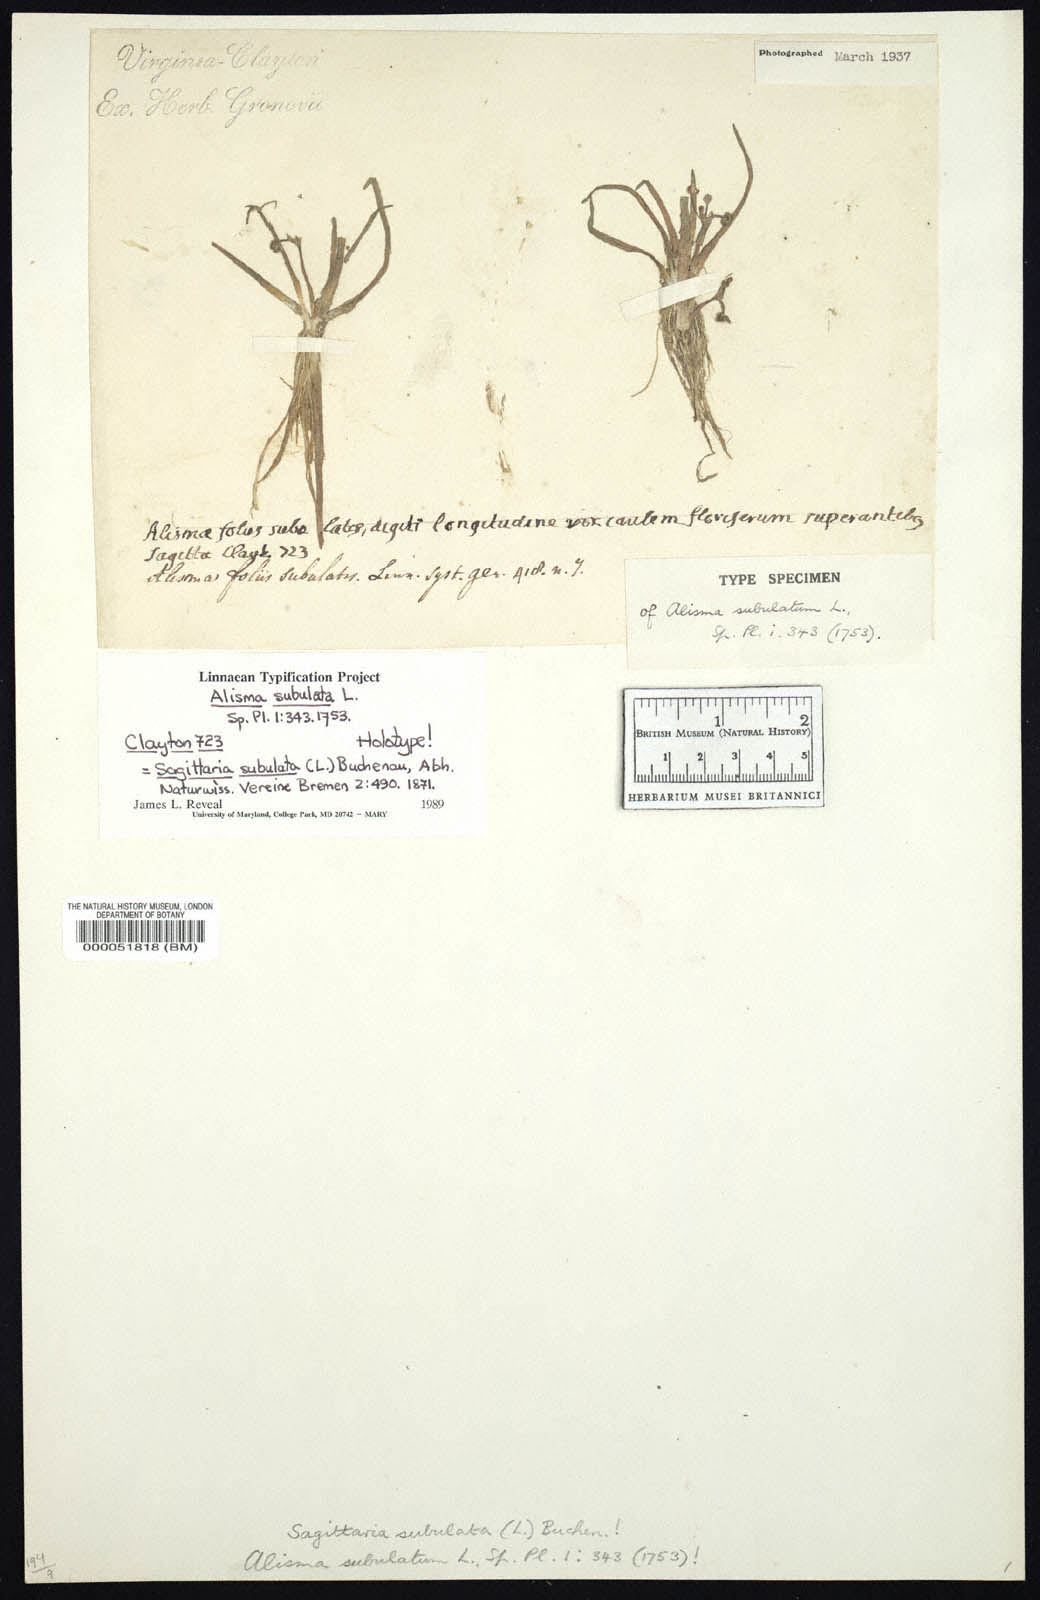 Virginia - Clayton
Ex. Herb. Gronovii
Photographed March 1937
Alisma foliis subulatis, digiti longitudine vix caulem floriferum superantibus
Sagitta Clayt. 723
Alisma foliis subulatis. Linn. syst. gen. 418. n. 7.
TYPE SPECIMEN
of Alisma subulatum L.,
Sp. Pl. i. 343 (1753).
Linnaean Typification Project
Alisma subulata L.
Sp. Pl. 1:343. 1753.
Clayton 723 Holotype!
= Sagittaria subulata (L.) Buchenau, Abh.
Naturwiss. Vereine Bremen 2:490. 1871.
James L. Reveal 1989
University of Maryland, College Park, MD 20742 – MARY
1 2
BRITISH MUSEUM (NATURAL HISTORY)
1 2 3 4 5
HERBARIUM MUSEI BRITANNICI
THE NATURAL HISTORY MUSEUM, LONDON
DEPARTMENT OF BOTANY
000051818 (BM)
Sagittaria subulata (L.) Buchen.!
Alisma subulatum L., Sp. Pl. 1: 343 (1753)!
194/9
1